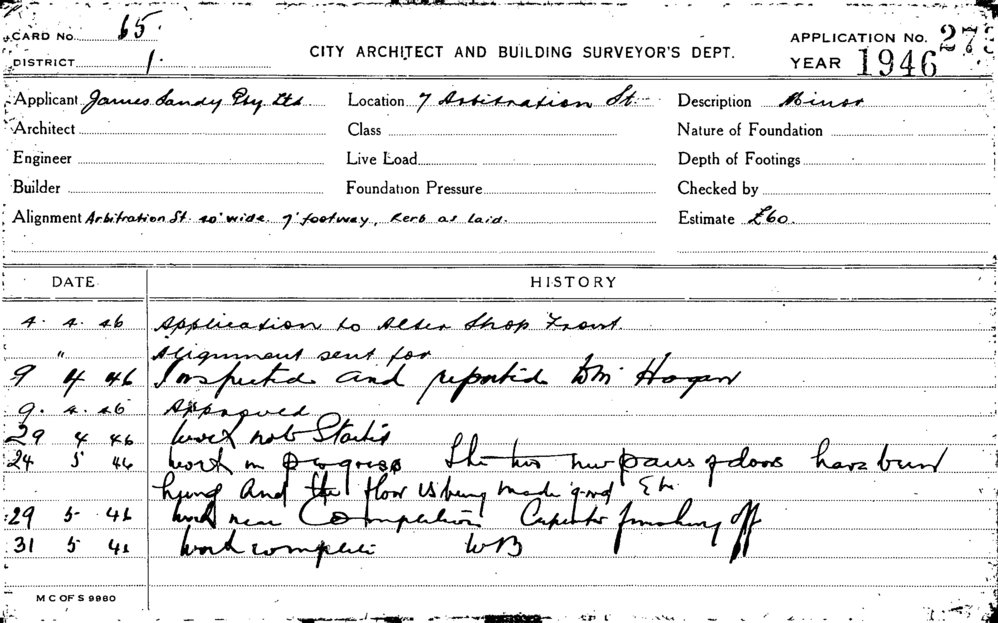 CARD No. 65.
DISTRICT 1.
CITY ARCHITECT AND BUILDING SURVEYOR'S DEPT.
APPLICATION NO. 273
YEAR 1946
Applicant James Sandy Pty Ltd Location 7 Arbitration St. Description Minor
Architect Class Nature of Foundation
Engineer Live Load Depth of Footings
Builder Foundation Pressure Checked by
Alignment Arbitration St. 20' wide. 7' footway, Kerb as laid. Estimate £60.
DATE HISTORY
4. 4. 46 Application to Alter Shop Front.
" Alignment sent for
9 4 46 Inspected and reported Wm Hogan
9. 4. 46 Approved
29 4 46 Work not Started
24 5 46 Work in progress The two new pairs of doors have been
hung and the floor is being made good Etc
29 5 46 Work near Completion Carpenter finishing off
31 5 46 Work complete WB
M C OF S 9960